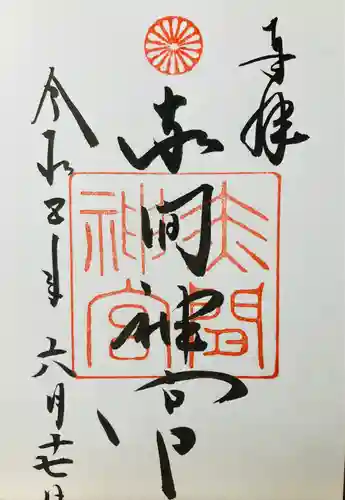 奉拝
赤間神宮
令和五年六月十七日
赤間
神宮